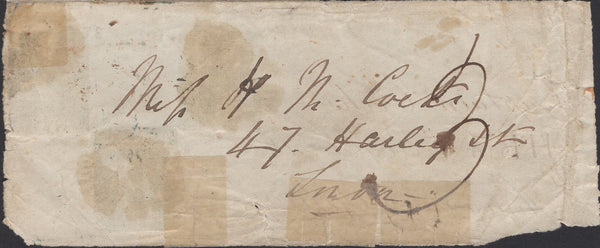 Miss H M. Cocks
47. Harley St.
London